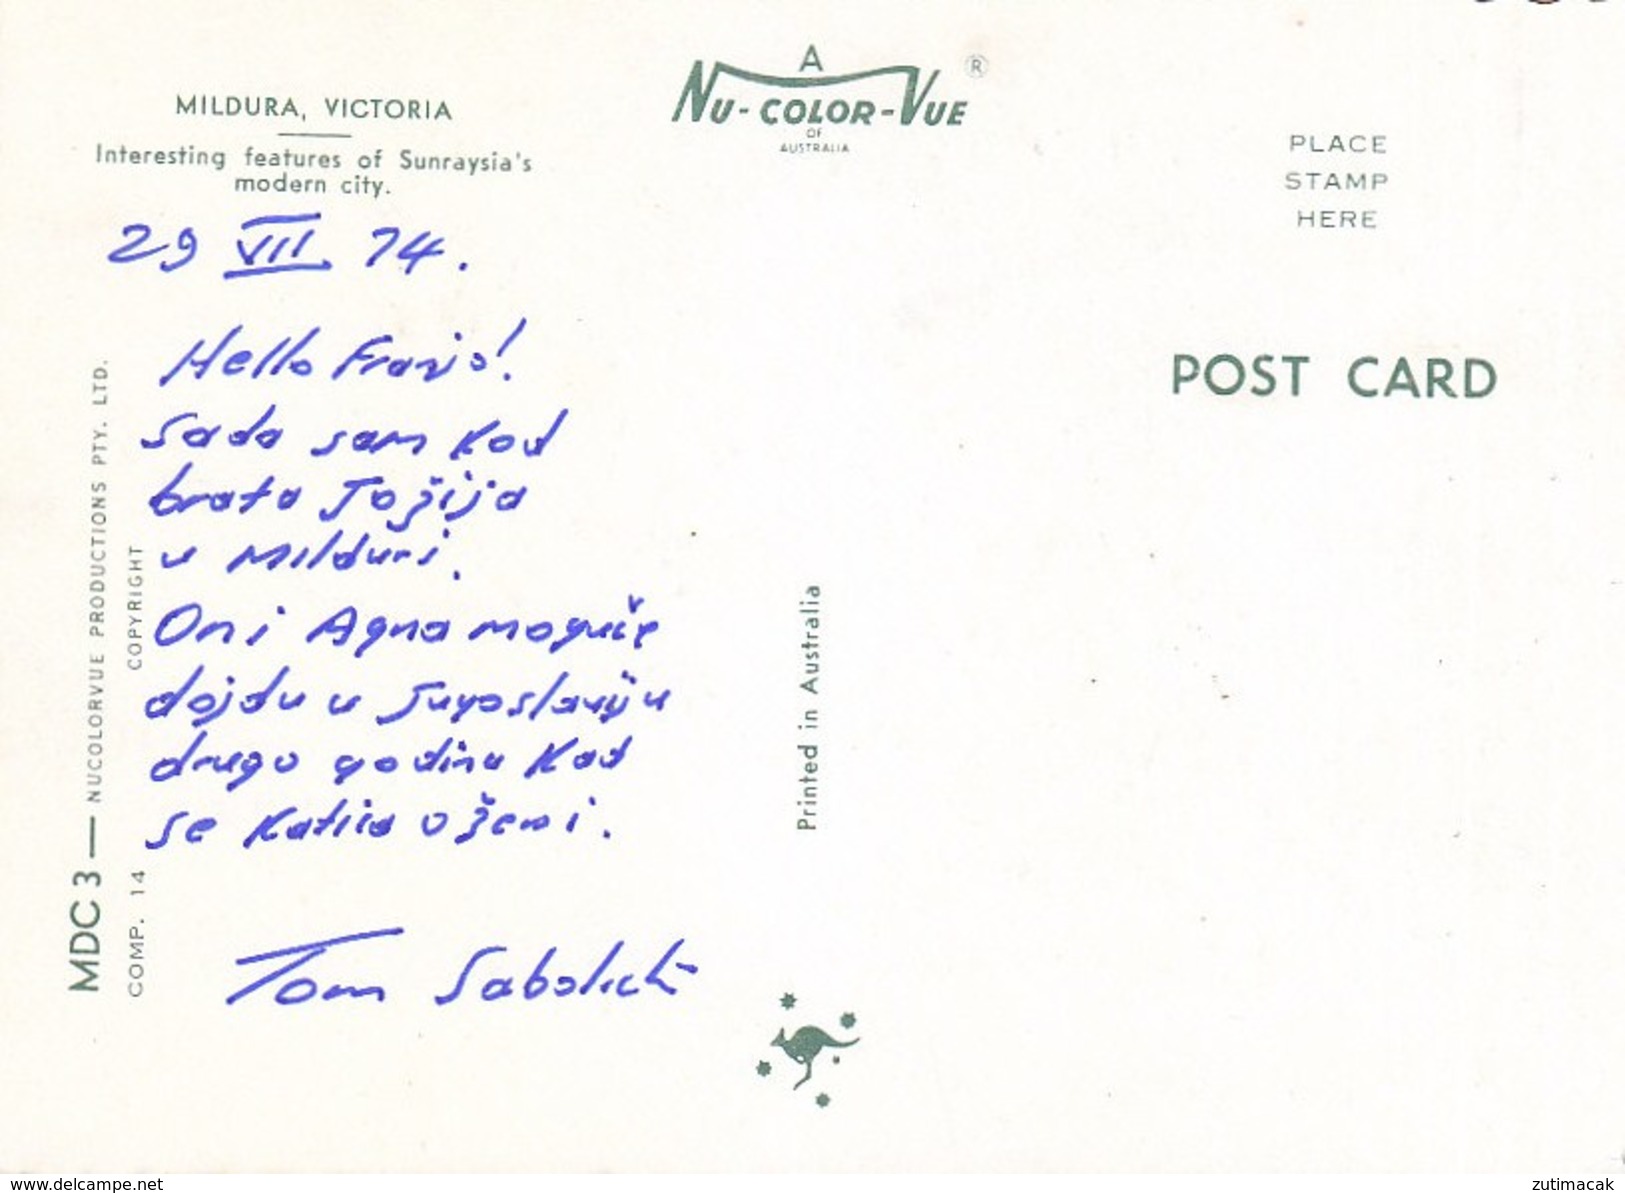 MILDURA, VICTORIA
Interesting features of Sunraysia's
modern city.
A
NU-COLOR-VUE ®
OF
AUSTRALIA
PLACE
STAMP
HERE
POST CARD
29 VII 74.
Hello Franjo!
Sada sam kod
brata Jožija
u Milduri.
On i Agna moguče
dojdu u Jugoslaviju
drugo godinu kad
se Katica oženi.
Tom Sabolich
MDC 3 — NUCOLORVUE PRODUCTIONS PTY. LTD.
COMP. 14 COPYRIGHT
Printed in Australia
www.delcampe.net
zutimacak